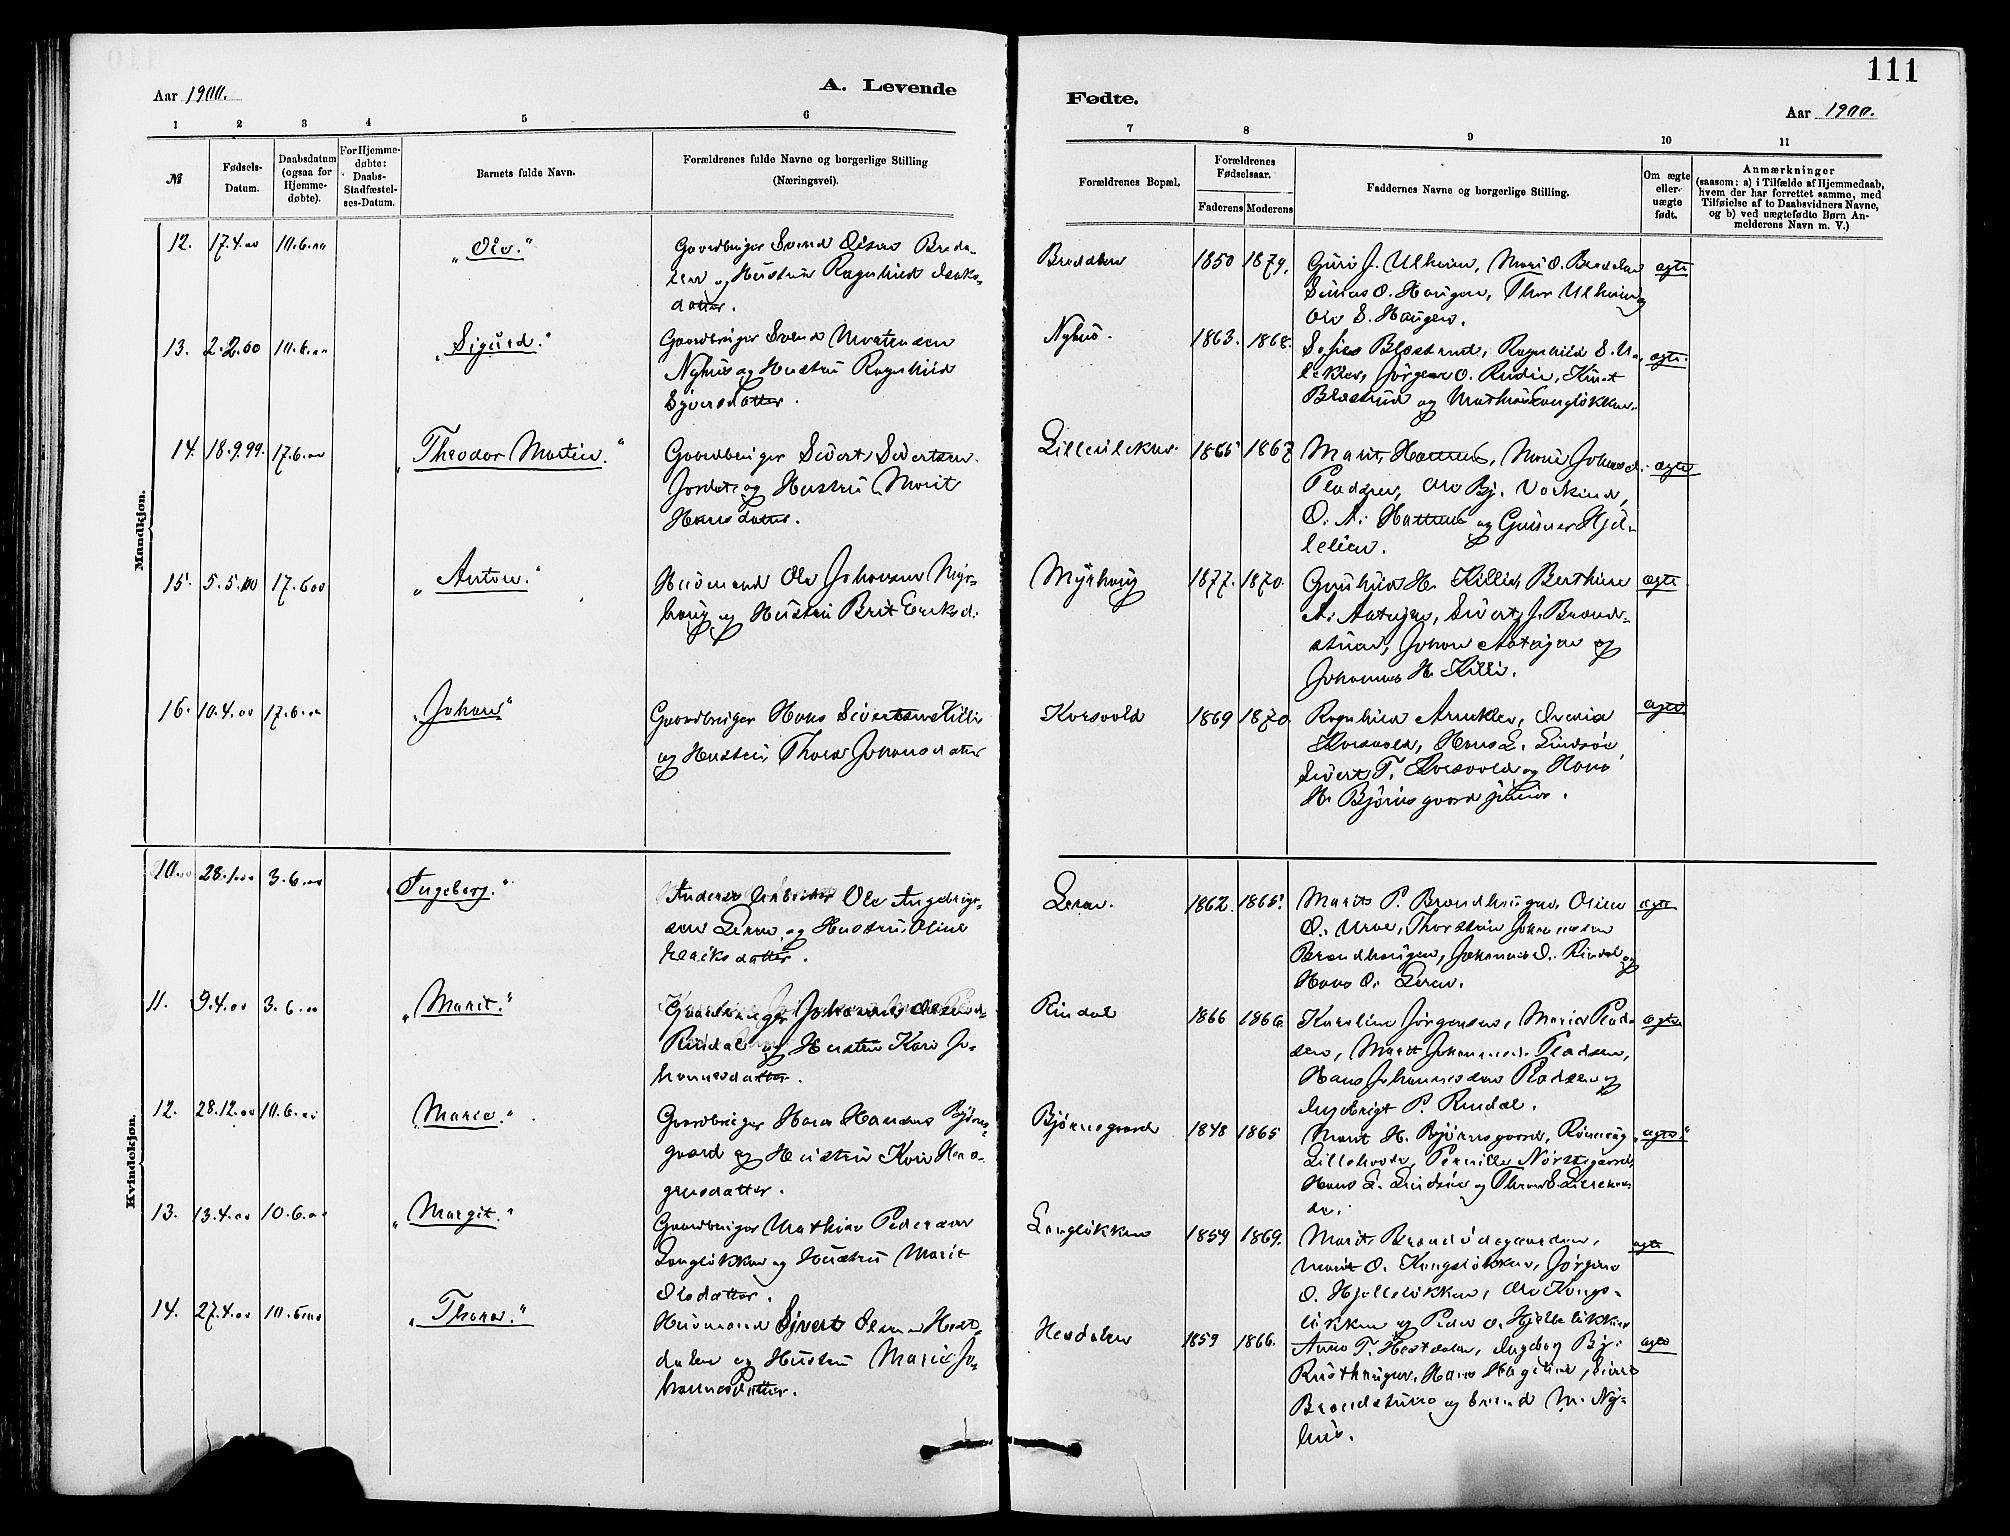 111
Aar 1900.
A. Levende
Fødte.
Aar 1900.
1 2 3 4 5 6
7 8 9 10 11
№
Fødsels-
Datum.
Daabsdatum
(ogsaa for
Hjemme-
døbte).
For Hjemme-
døbte:
Daabs-
Stadfæstel-
ses-Datum.
Barnets fulde Navn.
Forældrenes fulde Navne og borgerlige Stilling
(Næringsvei).
Forældrenes Bopæl.
Forældrenes
Fødselsaar.
Faderens Moderens
Faddernes Navne og borgerlige Stilling.
Om ægte
eller
uægte
født.
Anmærkninger
(saasom: a) i Tilfælde af Hjemmedaab,
hvem der har forrettet samme, med
Tilføielse af to Daabsvidners Navne,
og b) ved uægtefødte Børn An-
melderens Navn m. V.)
Mandkjøn.
12. 17.4.00 10.6.00 „Ole.“
Gaardbruger Svend Olsen Breda-
len og Hustru Ragnhild
datter.
Bredalen 1850 1879.
Guri J. Ulheim, Mari O. Bredalen
O. Haugen, Thor Ulheim og
Ole S. Haugen.
ægte
13. 2.2.00 10.6.00 „Sigurd.“
Gaardbruger Svend Mortensen
Nyhus og Hustru Ragnhild
Sjversdatter.
Nyhus. 1863. 1868.
Blæstrud, Ragnhild S. U-
lekler, Jørgen O. Rudi, Knut
Blæstrud og Mathias Langløkken.
ægte.
14. 18.9.99. 17.6.00 „Theodor Martin.“
Gaardbruger Sivert Sivertsen
Jordet og Hustru Marit
Hansdatter.
1865 1867
Marit Hattrem, Marie Johansd.
Pladsen, Ole Bj. Vorkind,
O. A. Hattrem og Gunner Hjel-
lelien.
ægte
15. 5.5.00 17.6.00 „Anton.“
Husmand Ole Johansen Myr-
haug og Hustru Brit Eriksd.
Myrhaug 1877. 1870.
Gunhild H. Killi, Berthine
A. Aateigen, Sivert J. Brænd-
stuen, Johan Aateigen og
Johannes H. Killi.
ægte
16. 10.4.00 17.6.00 „Johan“
Gaardbruger Hans Sivertsen Killi
og Hustru Thora Johansdatter
Korsvold 1869 1870.
Ragnhild Arneklev,
Korsvold, Hans L. Lindsøe
Sivert T. Korsvold og Hans
H. Bjørnsgaard junior.
ægte
Kvindekjøn.
10. 28.1.00 3.6.00 „Ingeborg.“
Ole Ingebrigt-
sen Leren og Hustru Oline
Eriksdatter.
Leren. 1862. 1865.
Marit P. Brandhaugen, Oline
O. Urne, Thorstein Johannesen
Brandhaugen, Johannes O. Rindal og
Hans O. Leren.
ægte
11. 9.4.00 3.6.00 „Marit.“
Gaardbruger Johannes Olsen
Rindal og Hustru Kari Jo-
hannesdatter.
Rindal 1866 1866.
Karoline Jørgensen, Marie Plad-
sen, Marit Johannesd. Pladsen,
Hans Johannesen Pladsen og
Ingebrigt P. Rindal.
ægte
12. 28.12.00 10.6.00 „Maria.“
Gaardbruger Hans Hansen Bjørns-
gaard og Hustru Kari Hau-
gensdatter.
Bjørnsgaard 1848 1865
Marit H. Bjørnsgaard, Rønnaug
Lillehovde, Pernille Nørstegaard,
Hans L. Lindsøe og
„ægte“
13. 13.4.00 10.6.00 „Margit.“
Gaardbruger Mathias Pedersen
Langløkken og Hustru Marit
Olsdatter.
Langløkken 1859 1869.
Marit Brændødegaarden,
Marit O. Kongsløkken, Jørgen
O. Hjelleløkken, Ole Kongs-
løkken og Peder O. Hjelleløkken
ægte
14. 27.4.00 10.6.00 „Thora.“
Husmand Sjvert Olsen Hest-
dalen og Hustru Marie Jo-
hannesdatter.
Hesdalen 1859 1866.
Anne T. Hestdalen, Ingeborg Bj.
Rusthaugen, Hans Hageløe,
Brændstuen og Svend M. Ny-
hus.
ægte